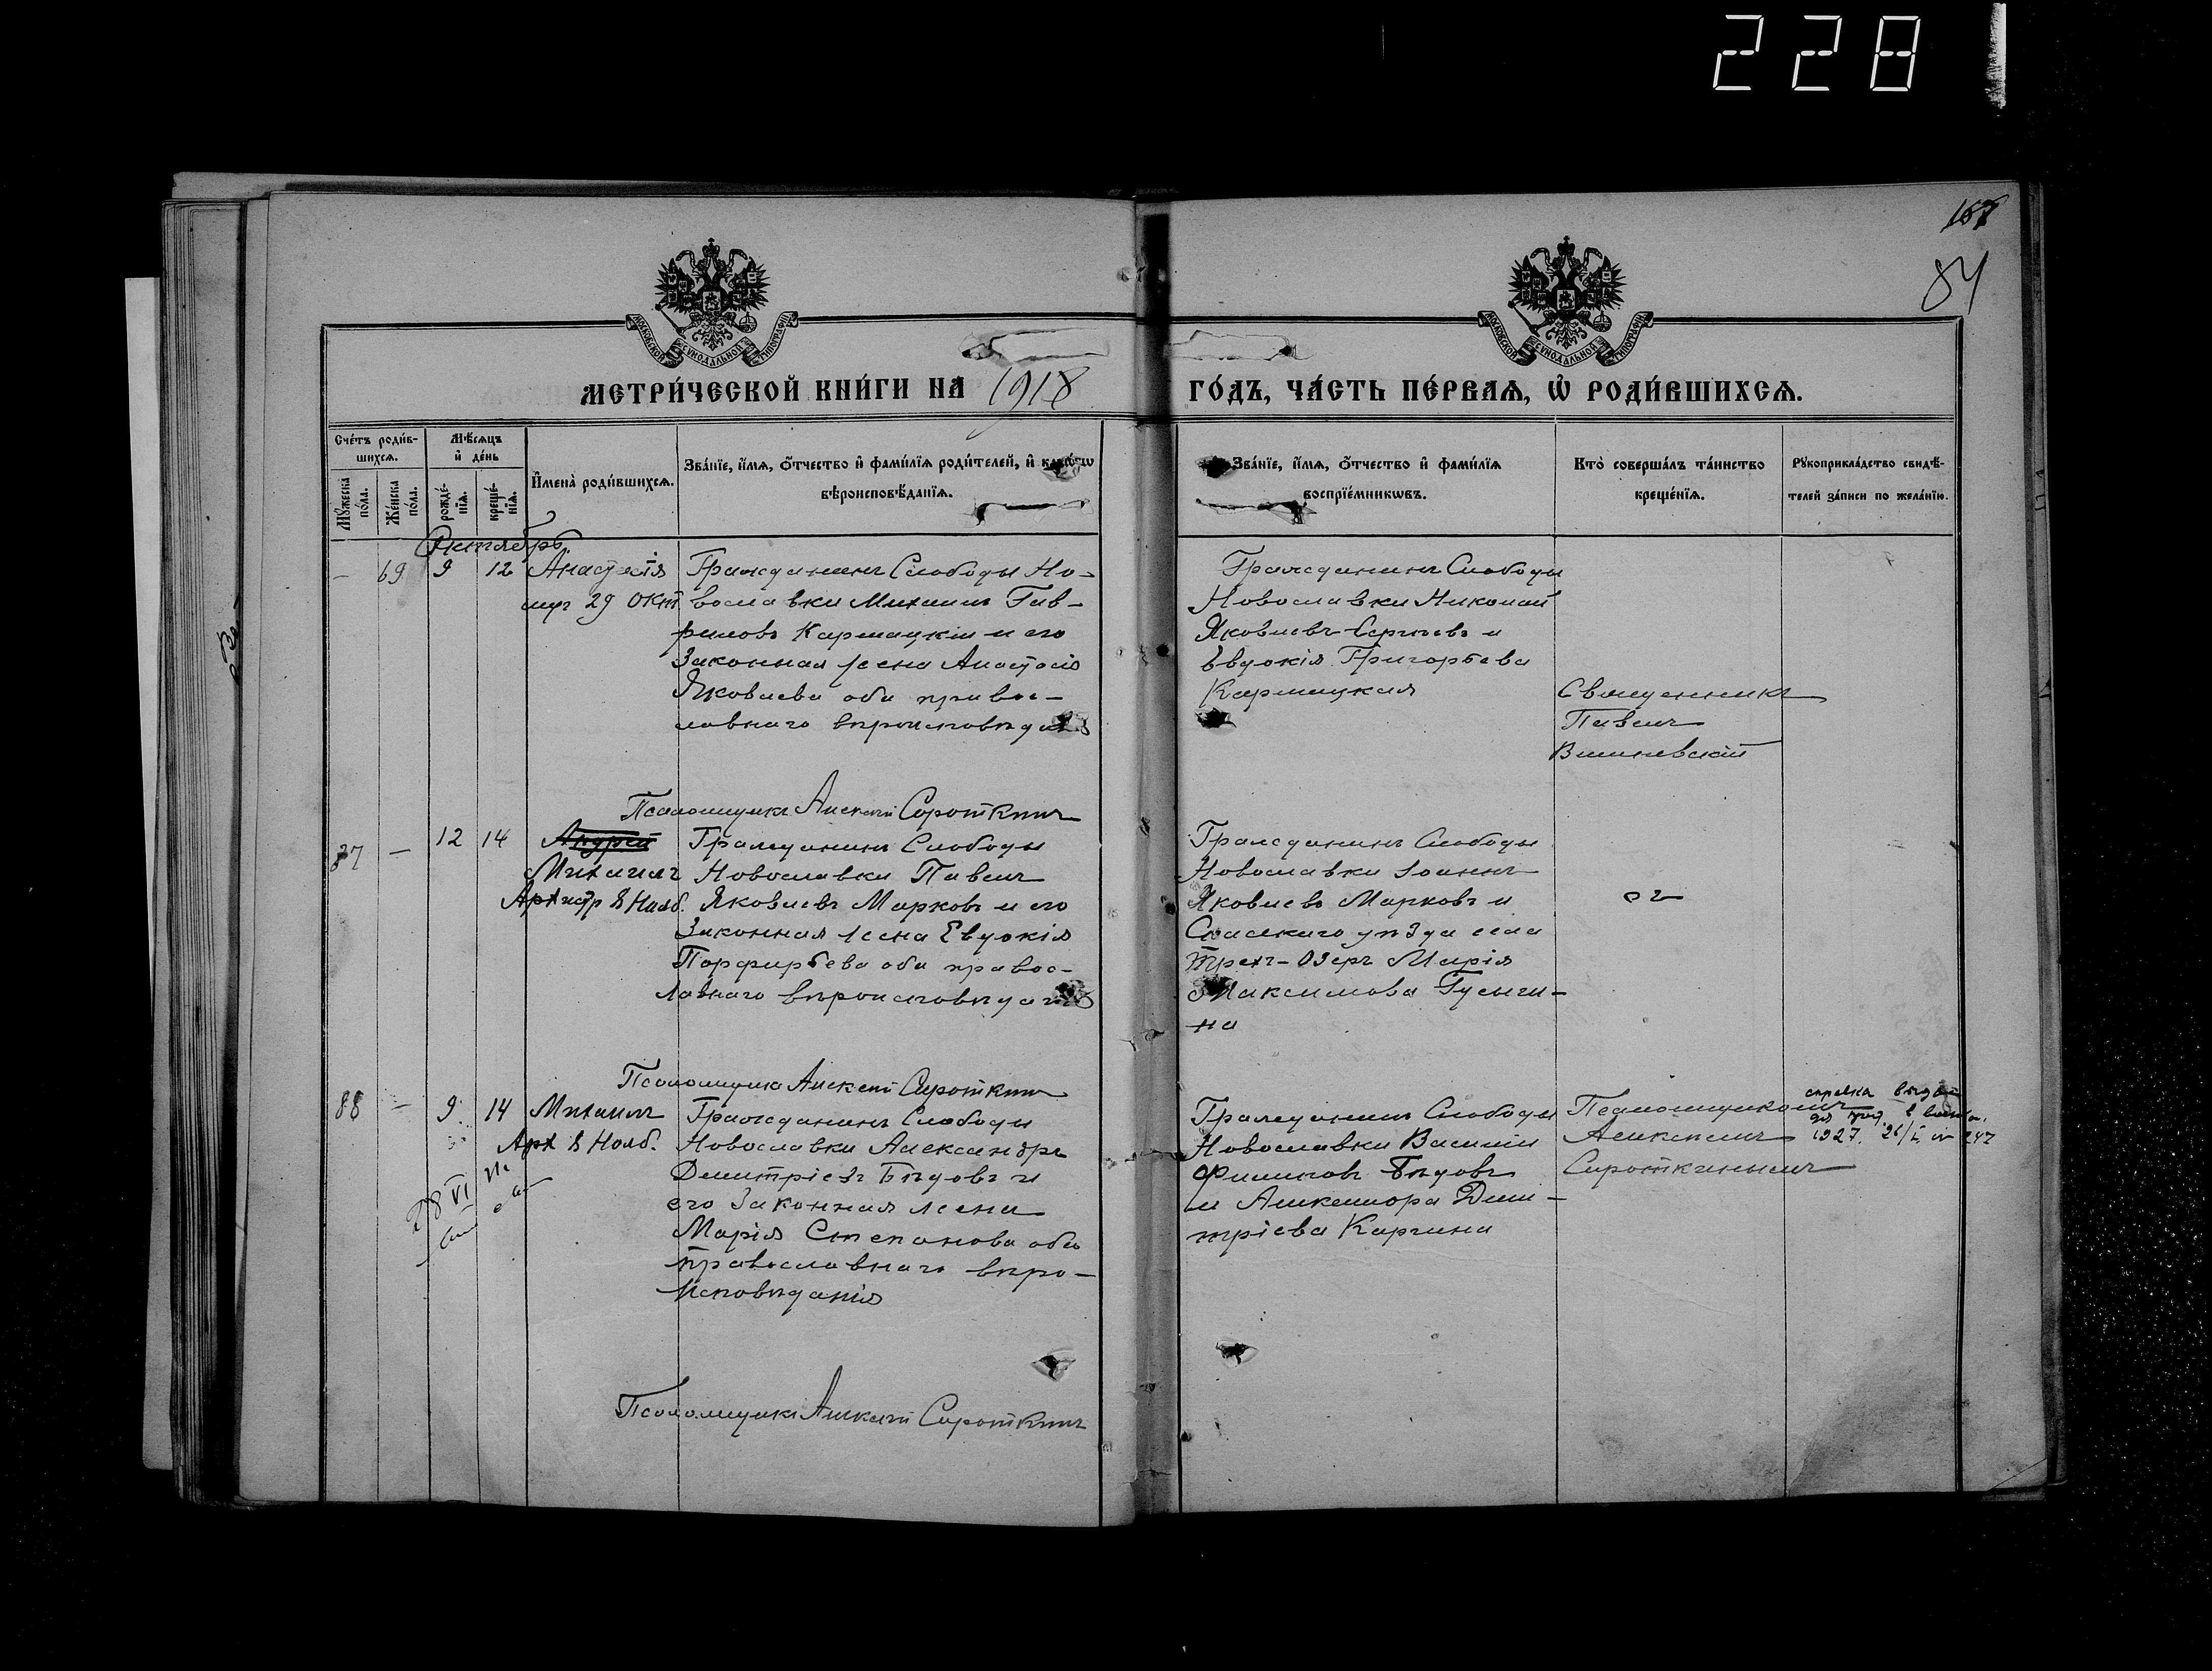 228
167
84
МОСКОВСКОЙ СУНОДАЛЬНОЙ ТИПОГРАФІИ
МОСКОВСКОЙ СУНОДАЛЬНОЙ ТИПОГРАФІИ
МЕТРИ́ЧЕСКОЙ КНИ́ГИ НА 1918 ГО́ДЪ, ЧА́СТЬ ПЕ́РВАѦ, Ѡ҆ РОДИ́ВШИХСѦ.
Сче́тъ роди́в-
шихсѧ.
Мѣ́сѧцъ
и҆ де́нь
Мꙋ́жеска
по́ла.
Же́нска
по́ла.
рожде́-
нїѧ.
креще́-
нїѧ.
И҆мена̀ роди́вшихсѧ.
Зва́нїе, и҆́мѧ, ѻ҆́тчество и҆ фами́лїѧ роди́телей, и҆
вѣроисповѣ́данїѧ.
Зва́нїе, и҆́мѧ, ѻ҆́тчество и҆ фами́лїѧ
воспрїе́мникѡвъ.
Кто̀ соверша́лъ та́инство
креще́нїѧ.
Рꙋкоприкла́дство свидѣ́-
телей за́писи по жела́нїю.
Октябрь
— 69 9 12 Анастасія
29 Окт
Гражданинъ Слободы Но-
вославки Михаилъ Гав-
риловъ Кармацкій и его
Законная жена Анастасія
Яковлева оба правос-
лавнаго вѣроисповѣданія
Гражданинъ Слободы
Новославки Николай
Яковлевъ Сергѣевъ и
Евдокія Григорьева
Кармацкая
Священникъ
Павелъ
Вишневскій
Псаломщикъ Алексѣй Сироткинъ
87 — 12 14 Андрей
Михаилъ
8 Нояб.
Гражданинъ Слободы
Новославки Павелъ
Яковлевъ Марковъ и его
Законная жена Евдокія
Порфирьева оба правос-
лавнаго вѣроисповѣданія
Гражданинъ Слободы
Новославки Іоаннъ
Яковлевъ Марковъ и
Спасскаго уѣзда села
Трехъ-Озеръ Марія
Максимова Гусыги-
на
Псаломщикъ Алексѣй Сироткинъ
88 — 9 14 Михаилъ
Арх 8 Нояб.
28 VI
Гражданинъ Слободы
Новославки Александръ
Димитріевъ Бѣдовъ и
его Законная жена
Марія Степанова оба
православнаго вѣро-
исповѣданія
Гражданинъ Слободы
Новославки Василій
Филиповъ Бѣдовъ
и Дми-
тріева Каргина
Псаломщикомъ
Алексѣемъ
Сироткинымъ
справка выдан
1927. 247
Псаломщикъ Алексѣй Сироткинъ